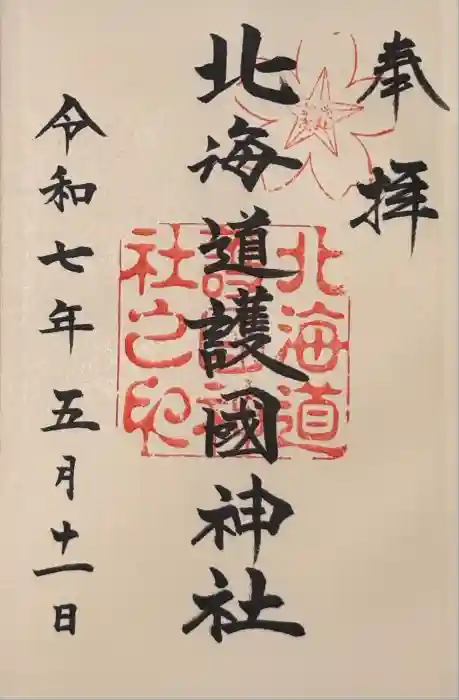 奉拝
北海道護國神社
北海道
護國神
社之印
令和七年五月十一日